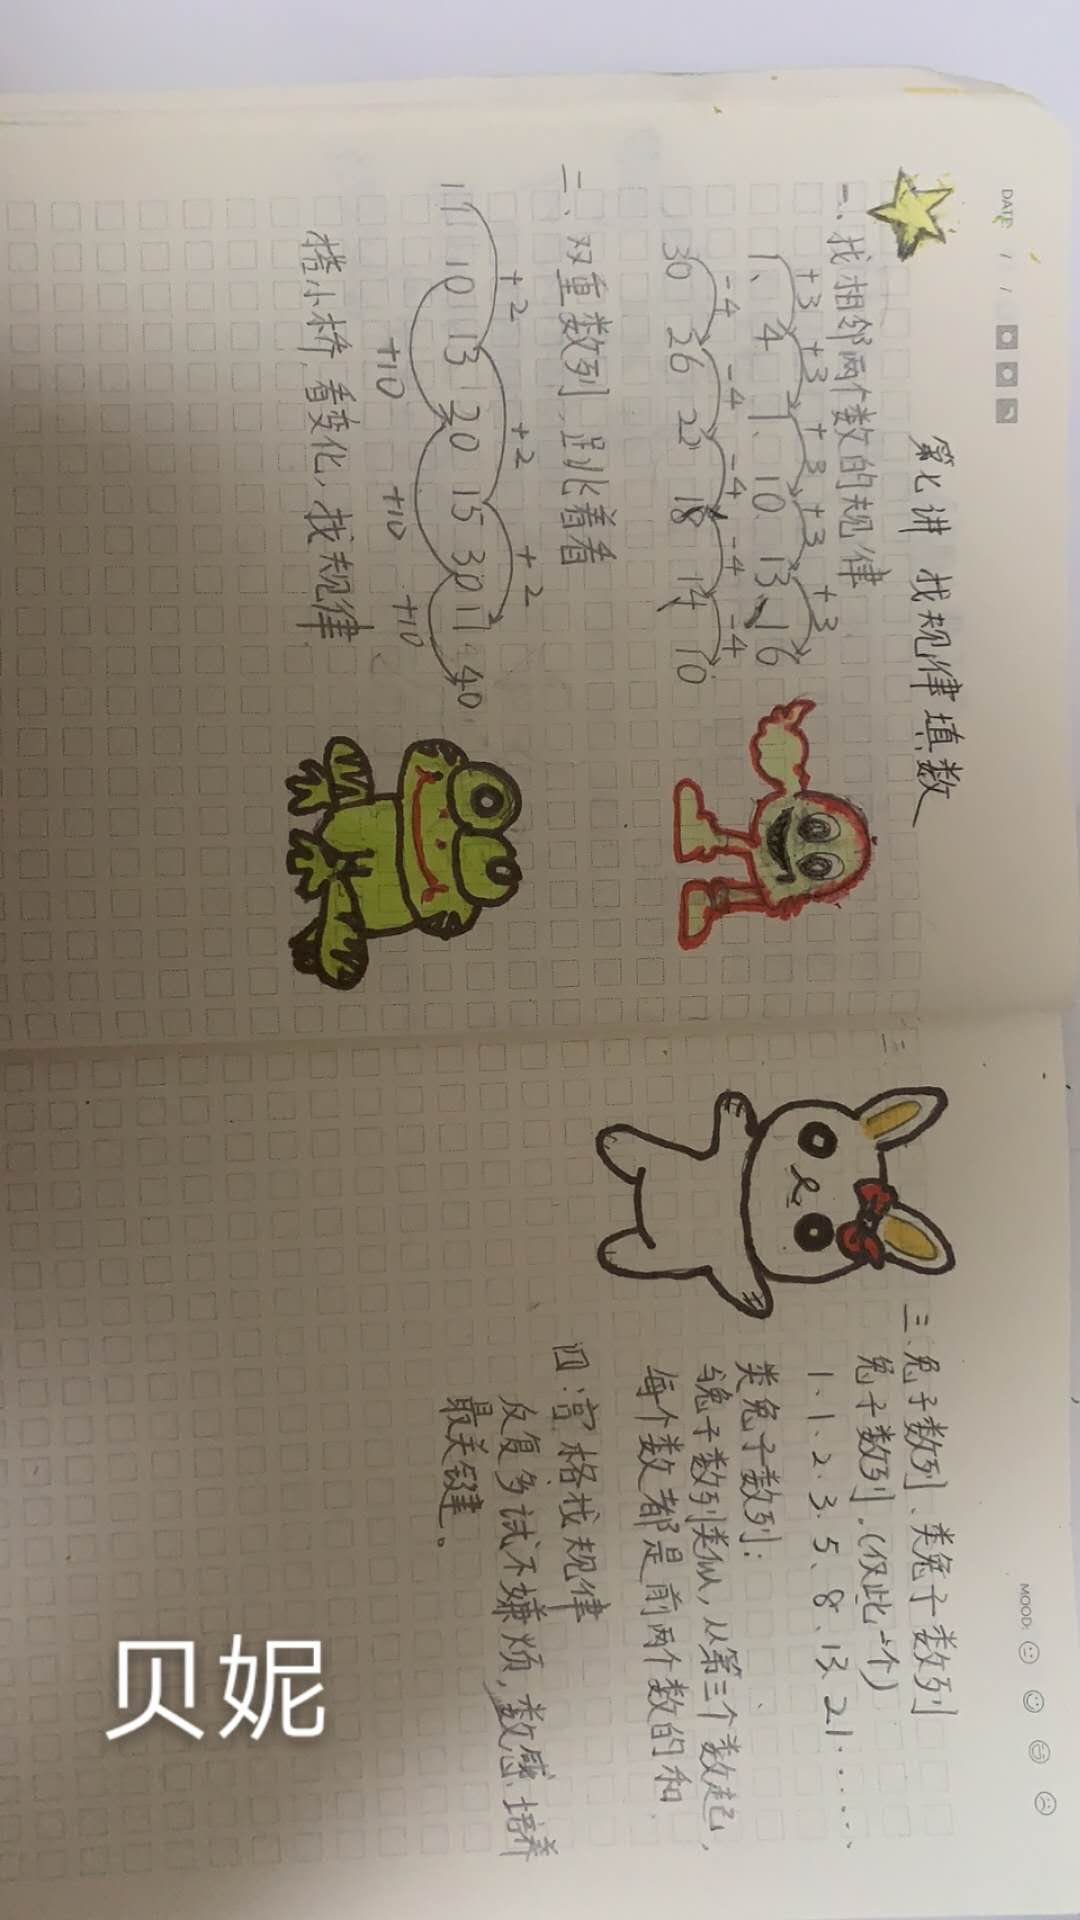 DATE: / /
第七讲 找规律填数
一、找相邻两个数的规律
+3 +3 +3 +3 +3
1、4 7、10 13、16
-4 -4 -4 -4 -4
30 26 22 18 14 10
二、双重数列,跳着看
+2 +2 +2
11 10 13 20 15 30 17 40
+10 +10 +10
搭小桥,看变化,找规律
二
MOOD:
三、兔子数列、类兔子数列
兔子数列.(仅此一个)
1、1、2、3、5、8、13、21······
类兔子数列:
与兔子数列类似,从第三个数起,
每个数都是前两个数的和
四、宫格找规律
反复多试不嫌烦,数感培养
最关键。
贝妮